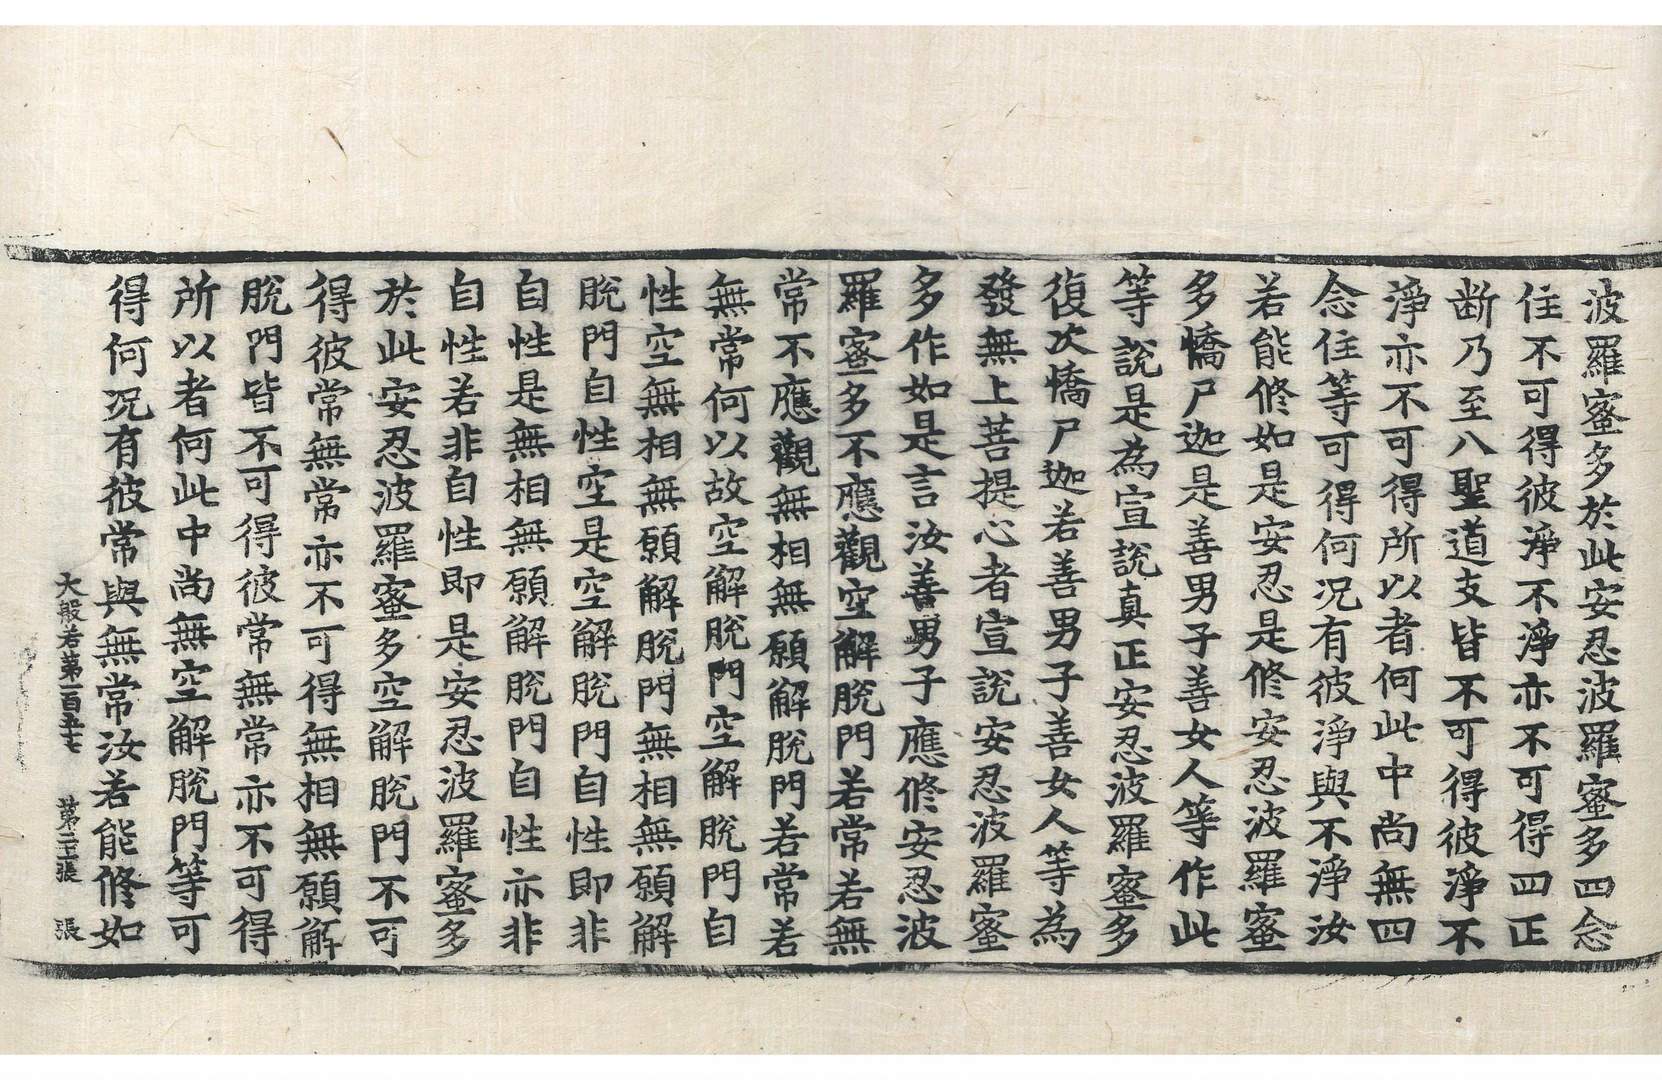 波羅蜜多於此安忍波羅蜜多四念
住不可得彼淨不淨亦不可得四正
断乃至八聖道支皆不可得彼淨不
淨亦不可得所以者何此中尚無四
念住等可得何况有彼淨與不淨汝
若能修如是安忍是修安忍波羅蜜
多憍尸迦是善男子善女人等作此
等說是為宣說真正安忍波羅蜜多
復次憍尸迦若善男子善女人等為
發無上菩提心者宣說安忍波羅蜜
多作如是言汝善男子應修安忍波
羅蜜多不應觀空解脫門若常若無
常不應觀無相無願解脫門若常若
無常何以故空解脫門空解脫門自
性空無相無願解脫門無相無願解
脫門自性空是空解脫門自性即非
自性是無相無願解脫門自性亦非
自性若非自性即是安忍波羅蜜多
於此安忍波羅蜜多空解脫門不可
得彼常無常亦不可得無相無願解
脫門皆不可得彼常無常亦不可得
所以者何此中尚無空解脫門等可
得何况有彼常與無常汝若能修如
大般若第一百五十七 第二張 張